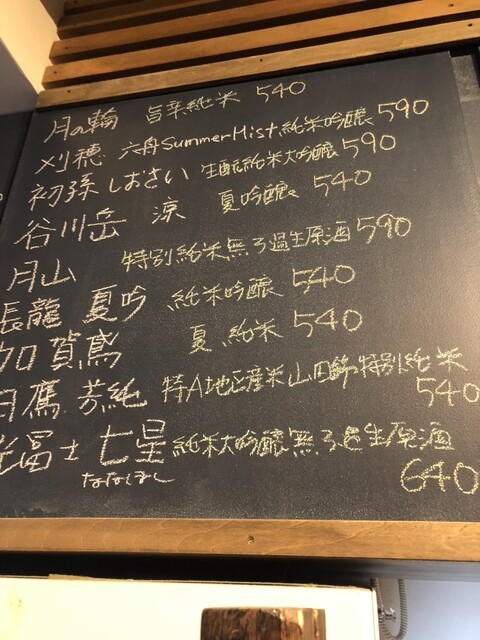 月の輪 旨辛純米 540
刈穂 六舟SummerMist純米吟醸590
初孫しおさい 生酛純米大吟醸590
谷川岳 涼 夏吟醸 540
月山 特別純米無ろ過生原酒590
長龍 夏吟 純米吟醸 540
加賀鳶 夏純米540
白鷹 芳純 特A地区産米山田錦特別純米
540
富士 七星 純米大吟醸無ろ過生原酒
ななしぼし
640